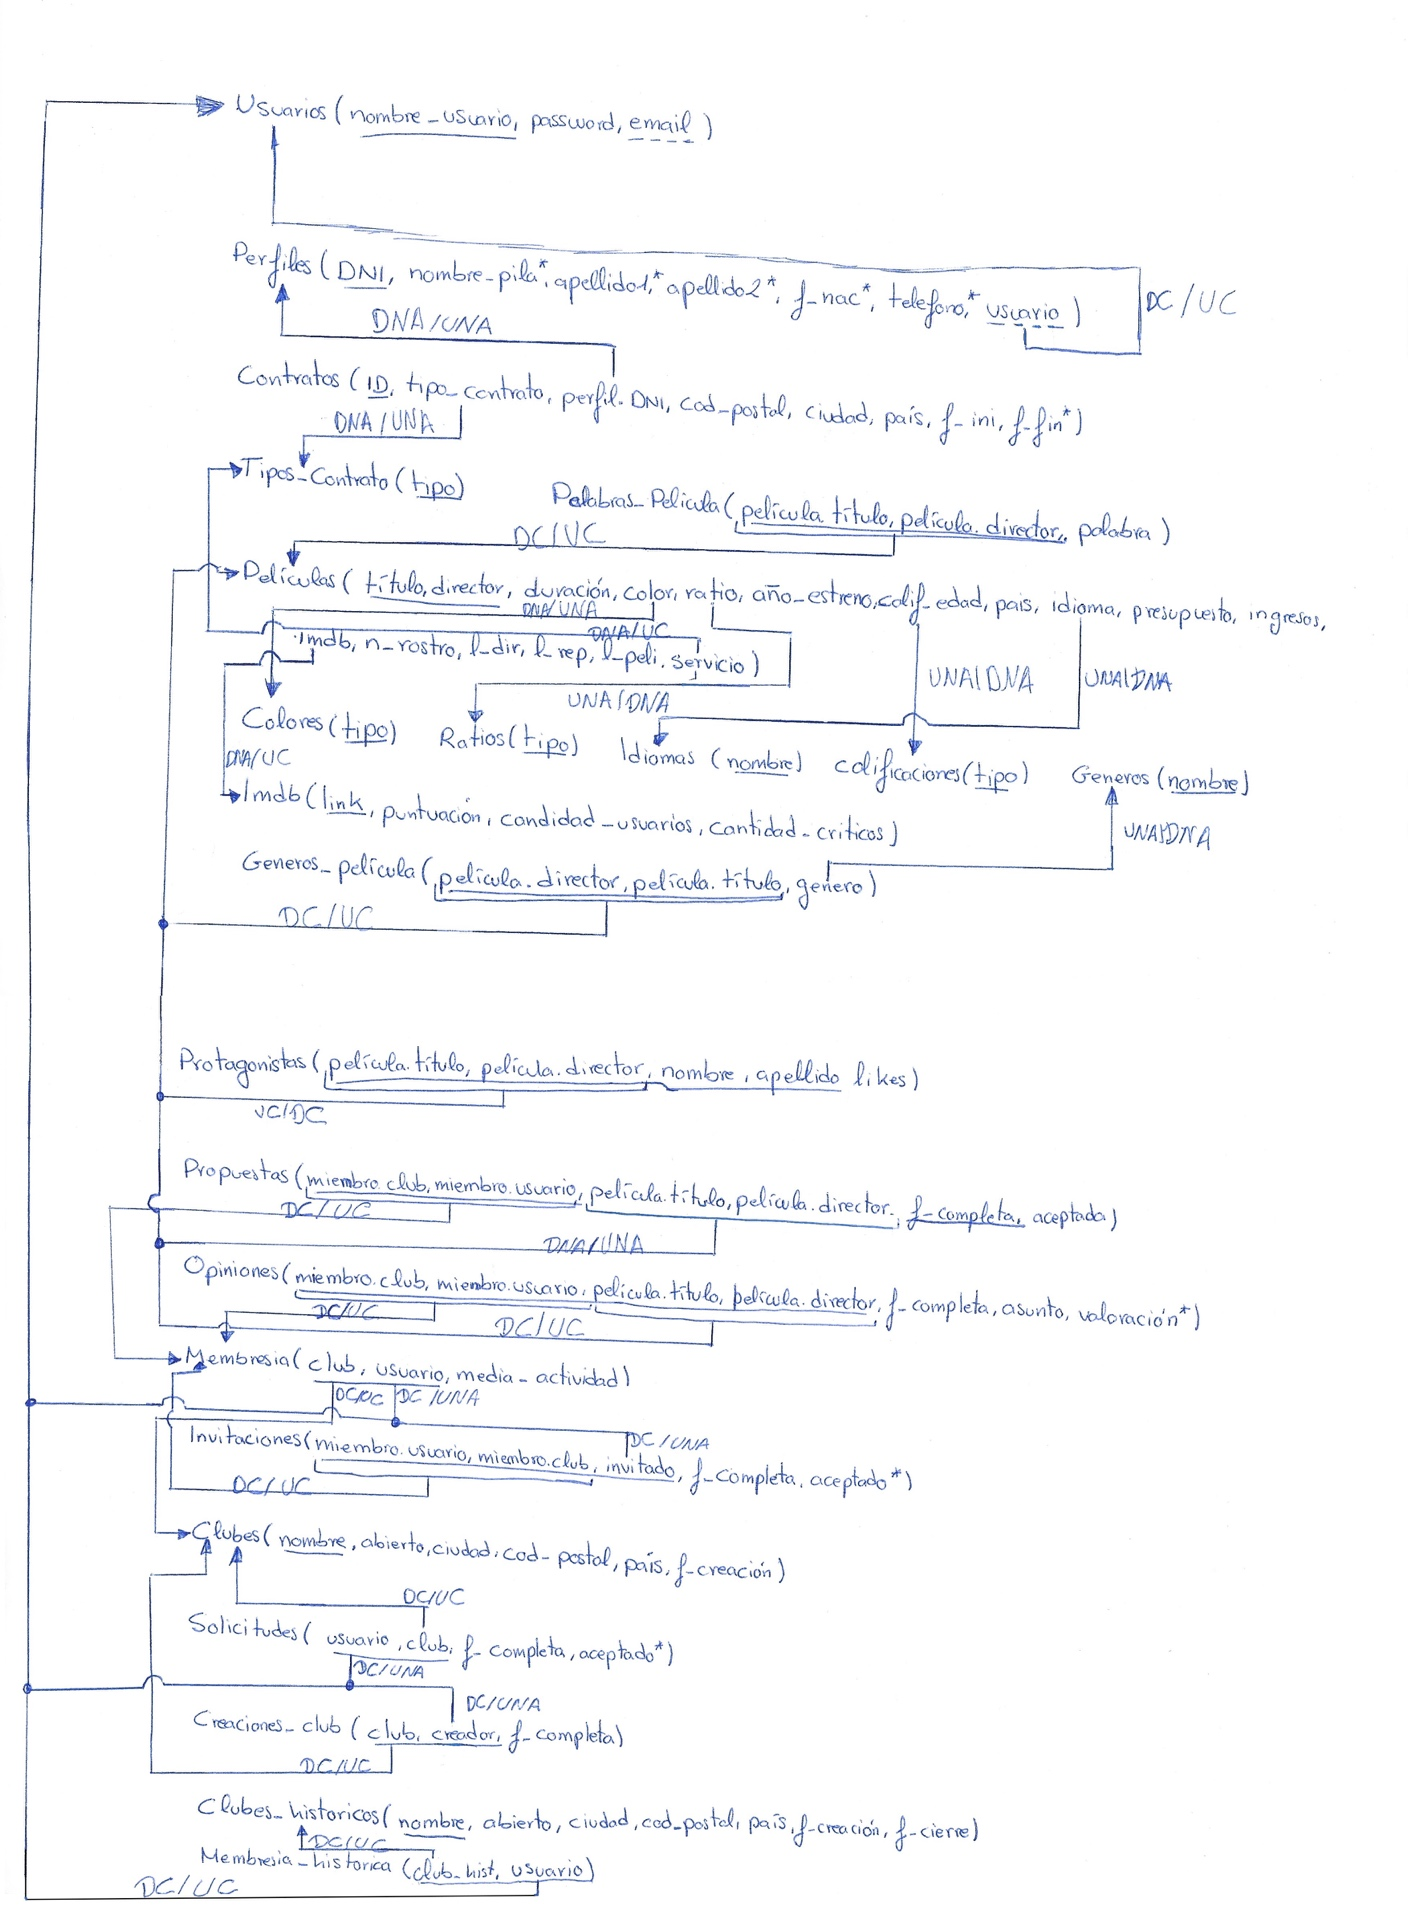 Usuarios (nombre_usuario, password, email)
Perfiles (DNI, nombre-pila*, apellido1,* apellido2*, f-nac*, telefono,* usuario)
DC/UC
DNA/UNA
Contratos (ID, tipo_contrato, perfil.DNI, cod-postal, ciudad, país, f-ini, f-fin*)
DNA/UNA
Tipos_Contrato (tipo)
Palabras_Pelicula (película.título, película.director, palabra)
DC/UC
Películas (título, director, duración, color, ratio, año-estreno, calif_edad, pais, idioma, presupuesto, ingresos,
DNA/UNA
DNA/UC
imdb, n-rostro, l-dir, l-rep, l-peli, servicio)
UNA/DNA
UNA/DNA
UNA/DNA
Colores (tipo) Ratios (tipo) Idiomas (nombre) calificaciones (tipo) Generos (nombre)
DNA/UC
Imdb (link, puntuación, candidad_usuarios, cantidad-criticos)
UNA/DNA
Generos_película (película.director, película.título, genero)
DC/UC
Protagonistas (película.título, película.director, nombre, apellido likes)
UC/DC
Propuestas (miembro.club, miembro.usuario, película.título, película.director, f-completa, aceptada)
DC/UC
DNA/UNA
Opiniones (miembro.club, miembro.usuario, película.título, película.director, f-completa, asunto, valoración*)
DC/UC
DC/UC
Membresia (club, usuario, media-actividad)
DC/UC DC/UNA
DC/UNA
Invitaciones (miembro.usuario, miembro.club, invitado, f-completa, aceptado*)
DC/UC
Clubes (nombre, abierto, ciudad, cod-postal, país, f-creación)
DC/UC
Solicitudes (usuario, club, f-completa, aceptado*)
DC/UNA
DC/UNA
Creaciones_club (club, creador, f-completa)
DC/UC
Clubes_historicos (nombre, abierto, ciudad, cod_postal, país, f-creación, f-cierre)
DC/UC
Membresia_historica (club-hist, usuario)
DC/UC